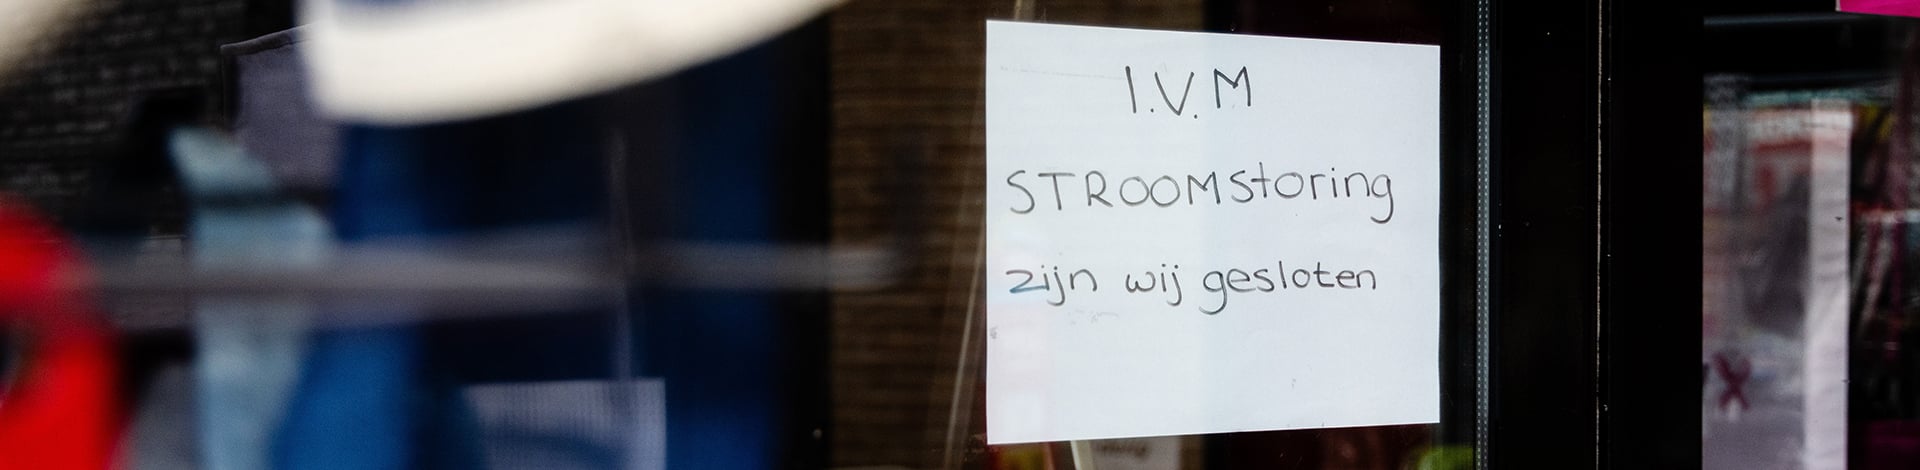 I.V.M
STROOMstoring
zijn wij gesloten